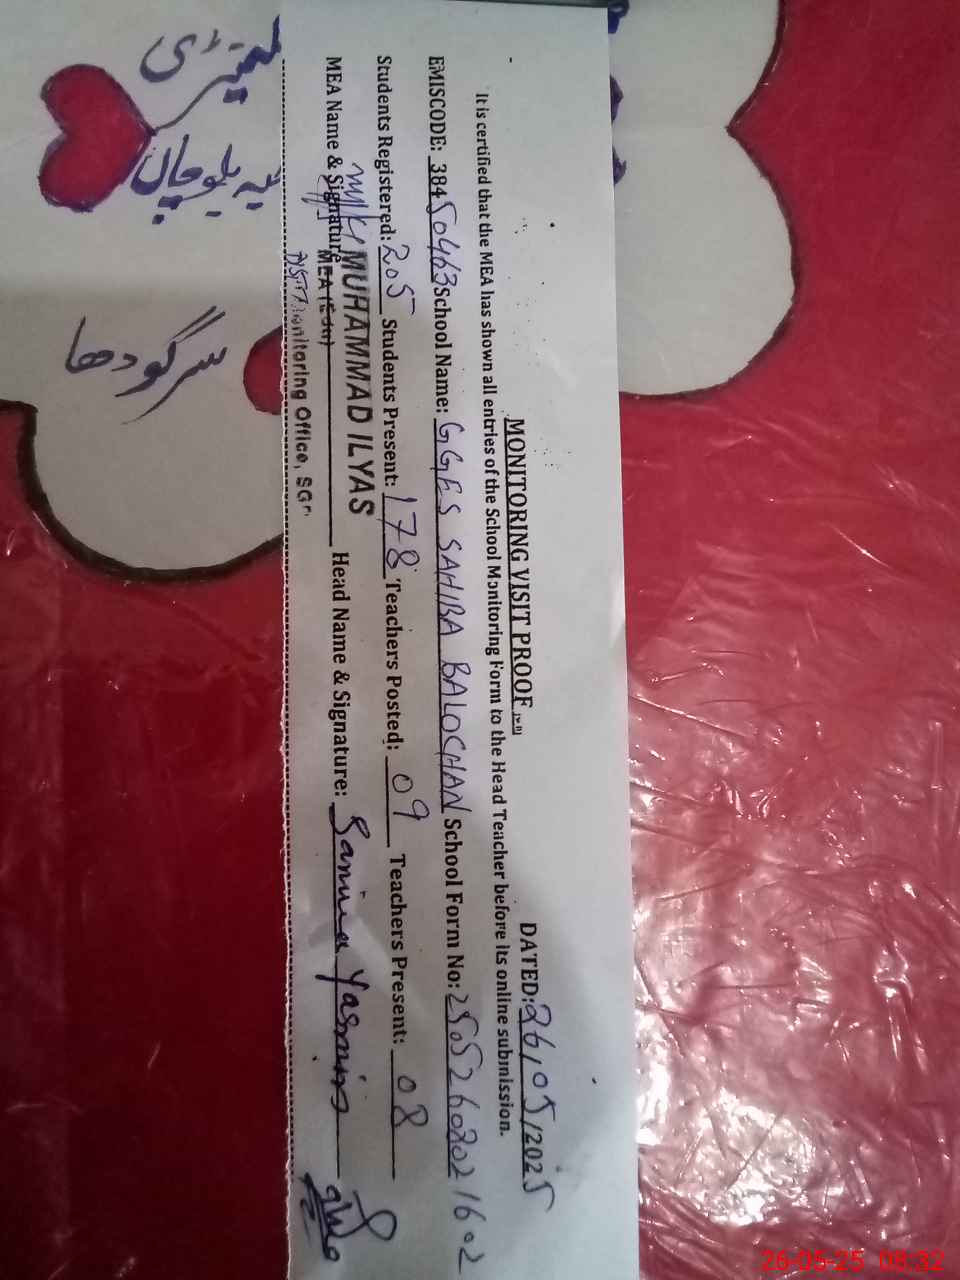 MONITORING VISIT PROOF
DATED: 26/05/2025
It is certified that the MEA has shown all entries of the School Monitoring Form to the Head Teacher before its online submission.
EMISCODE: 38450463 School Name: GGES SAHIBA BALOCHAN School Form No: 25052608021602
Students Registered: 205 Students Present: 178 Teachers Posted: 09 Teachers Present: 08
MEA Name & Signature MUHAMMAD ILYAS Head Name & Signature: Samina Yasmin
MEA
Monitoring Office,
سرگودھا
26-05-25 08:32